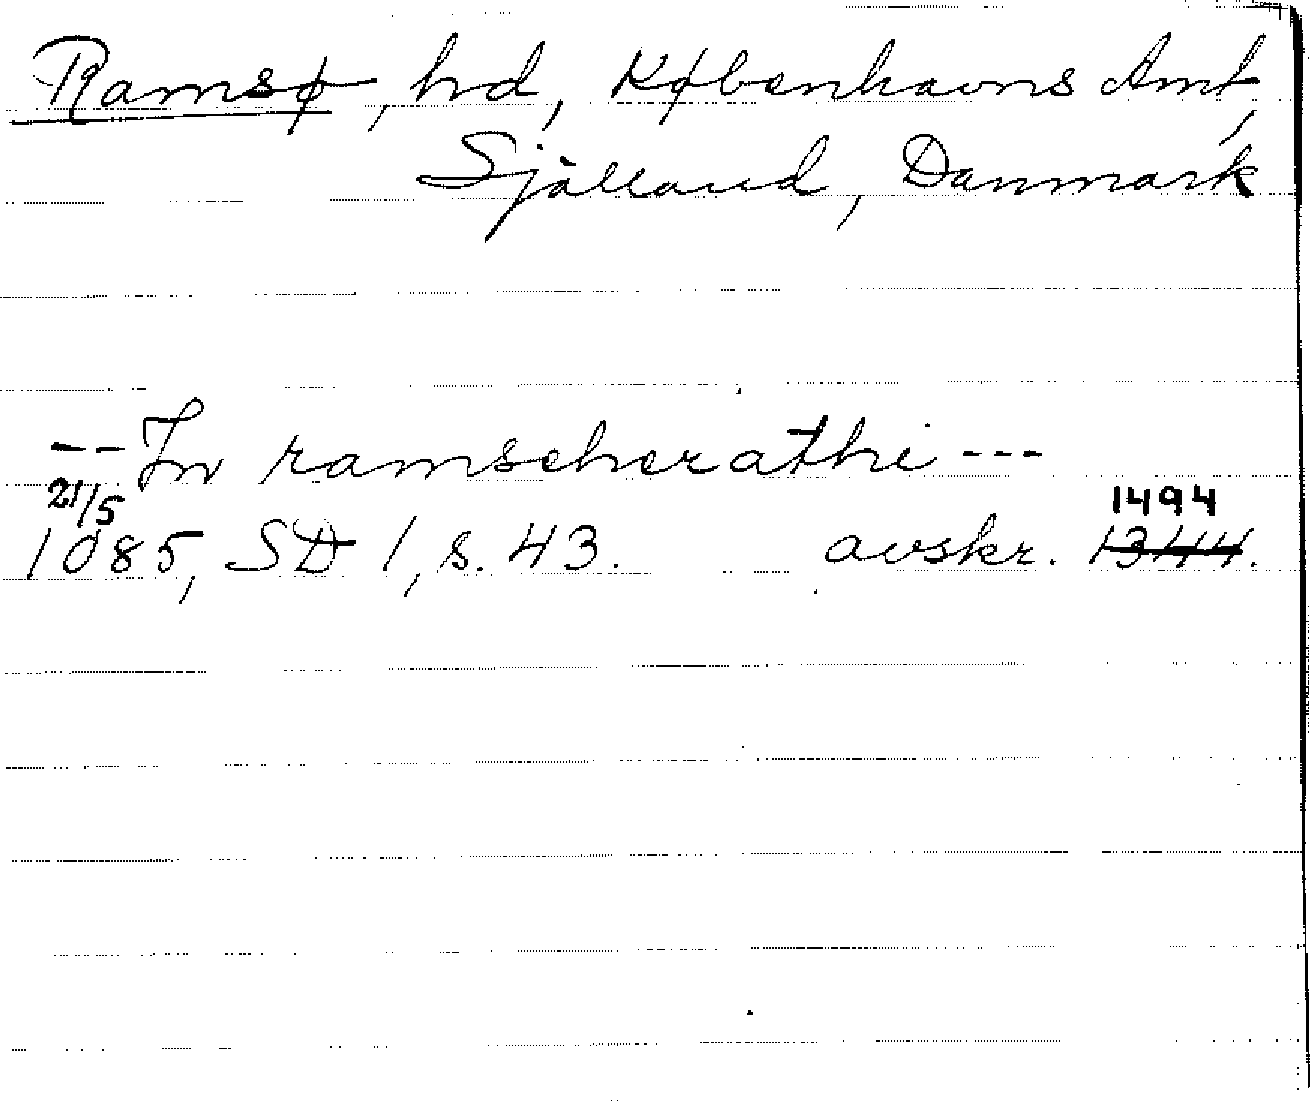 Ramsø, hd, Københavns Amt,
Sjålland, Danmark
-- In ramseherathi ---
21/5 1494
1085, SD 1, s. 43. avskr. 1344.